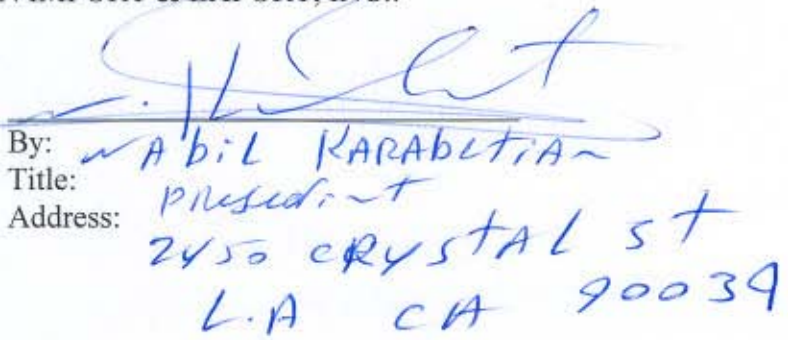 By: NAbiL KARAbetiAn
Title: President
Address: 2450 CRYstAL St
L.A CA 90039